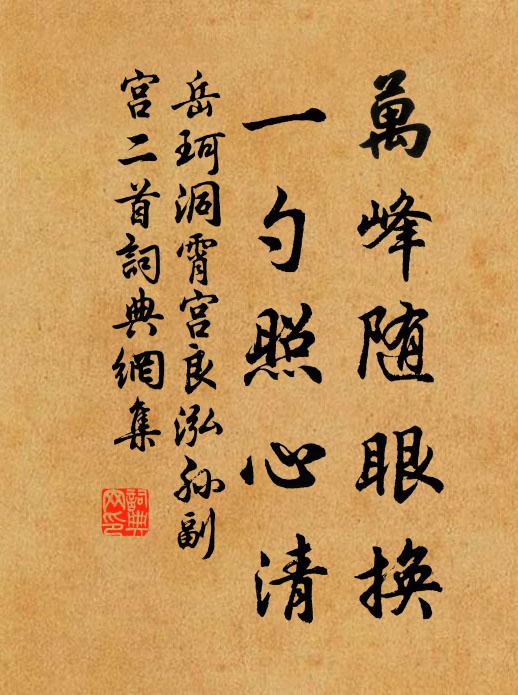 萬峰随眼換
一勺照心清
岳珂洞霄宮良泓孙副
宮二首詞典網集
詞典
网印